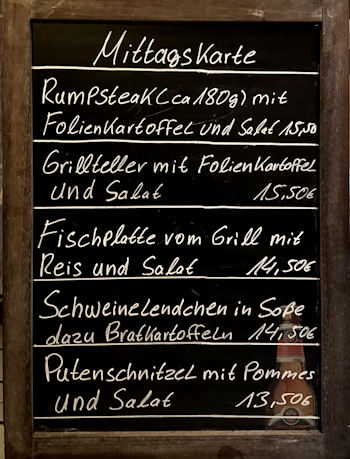 Mittagskarte
Rumpsteak (ca 180g) mit
Folienkartoffel und Salat 15,50
Grillteller mit Folienkartoffel
und Salat 15,50€
Fischplatte vom Grill mit
Reis und Salat 14,50€
Schweinelendchen in Soße
dazu Bratkartoffeln 14,50€
Putenschnitzel mit Pommes
und Salat 13,50€